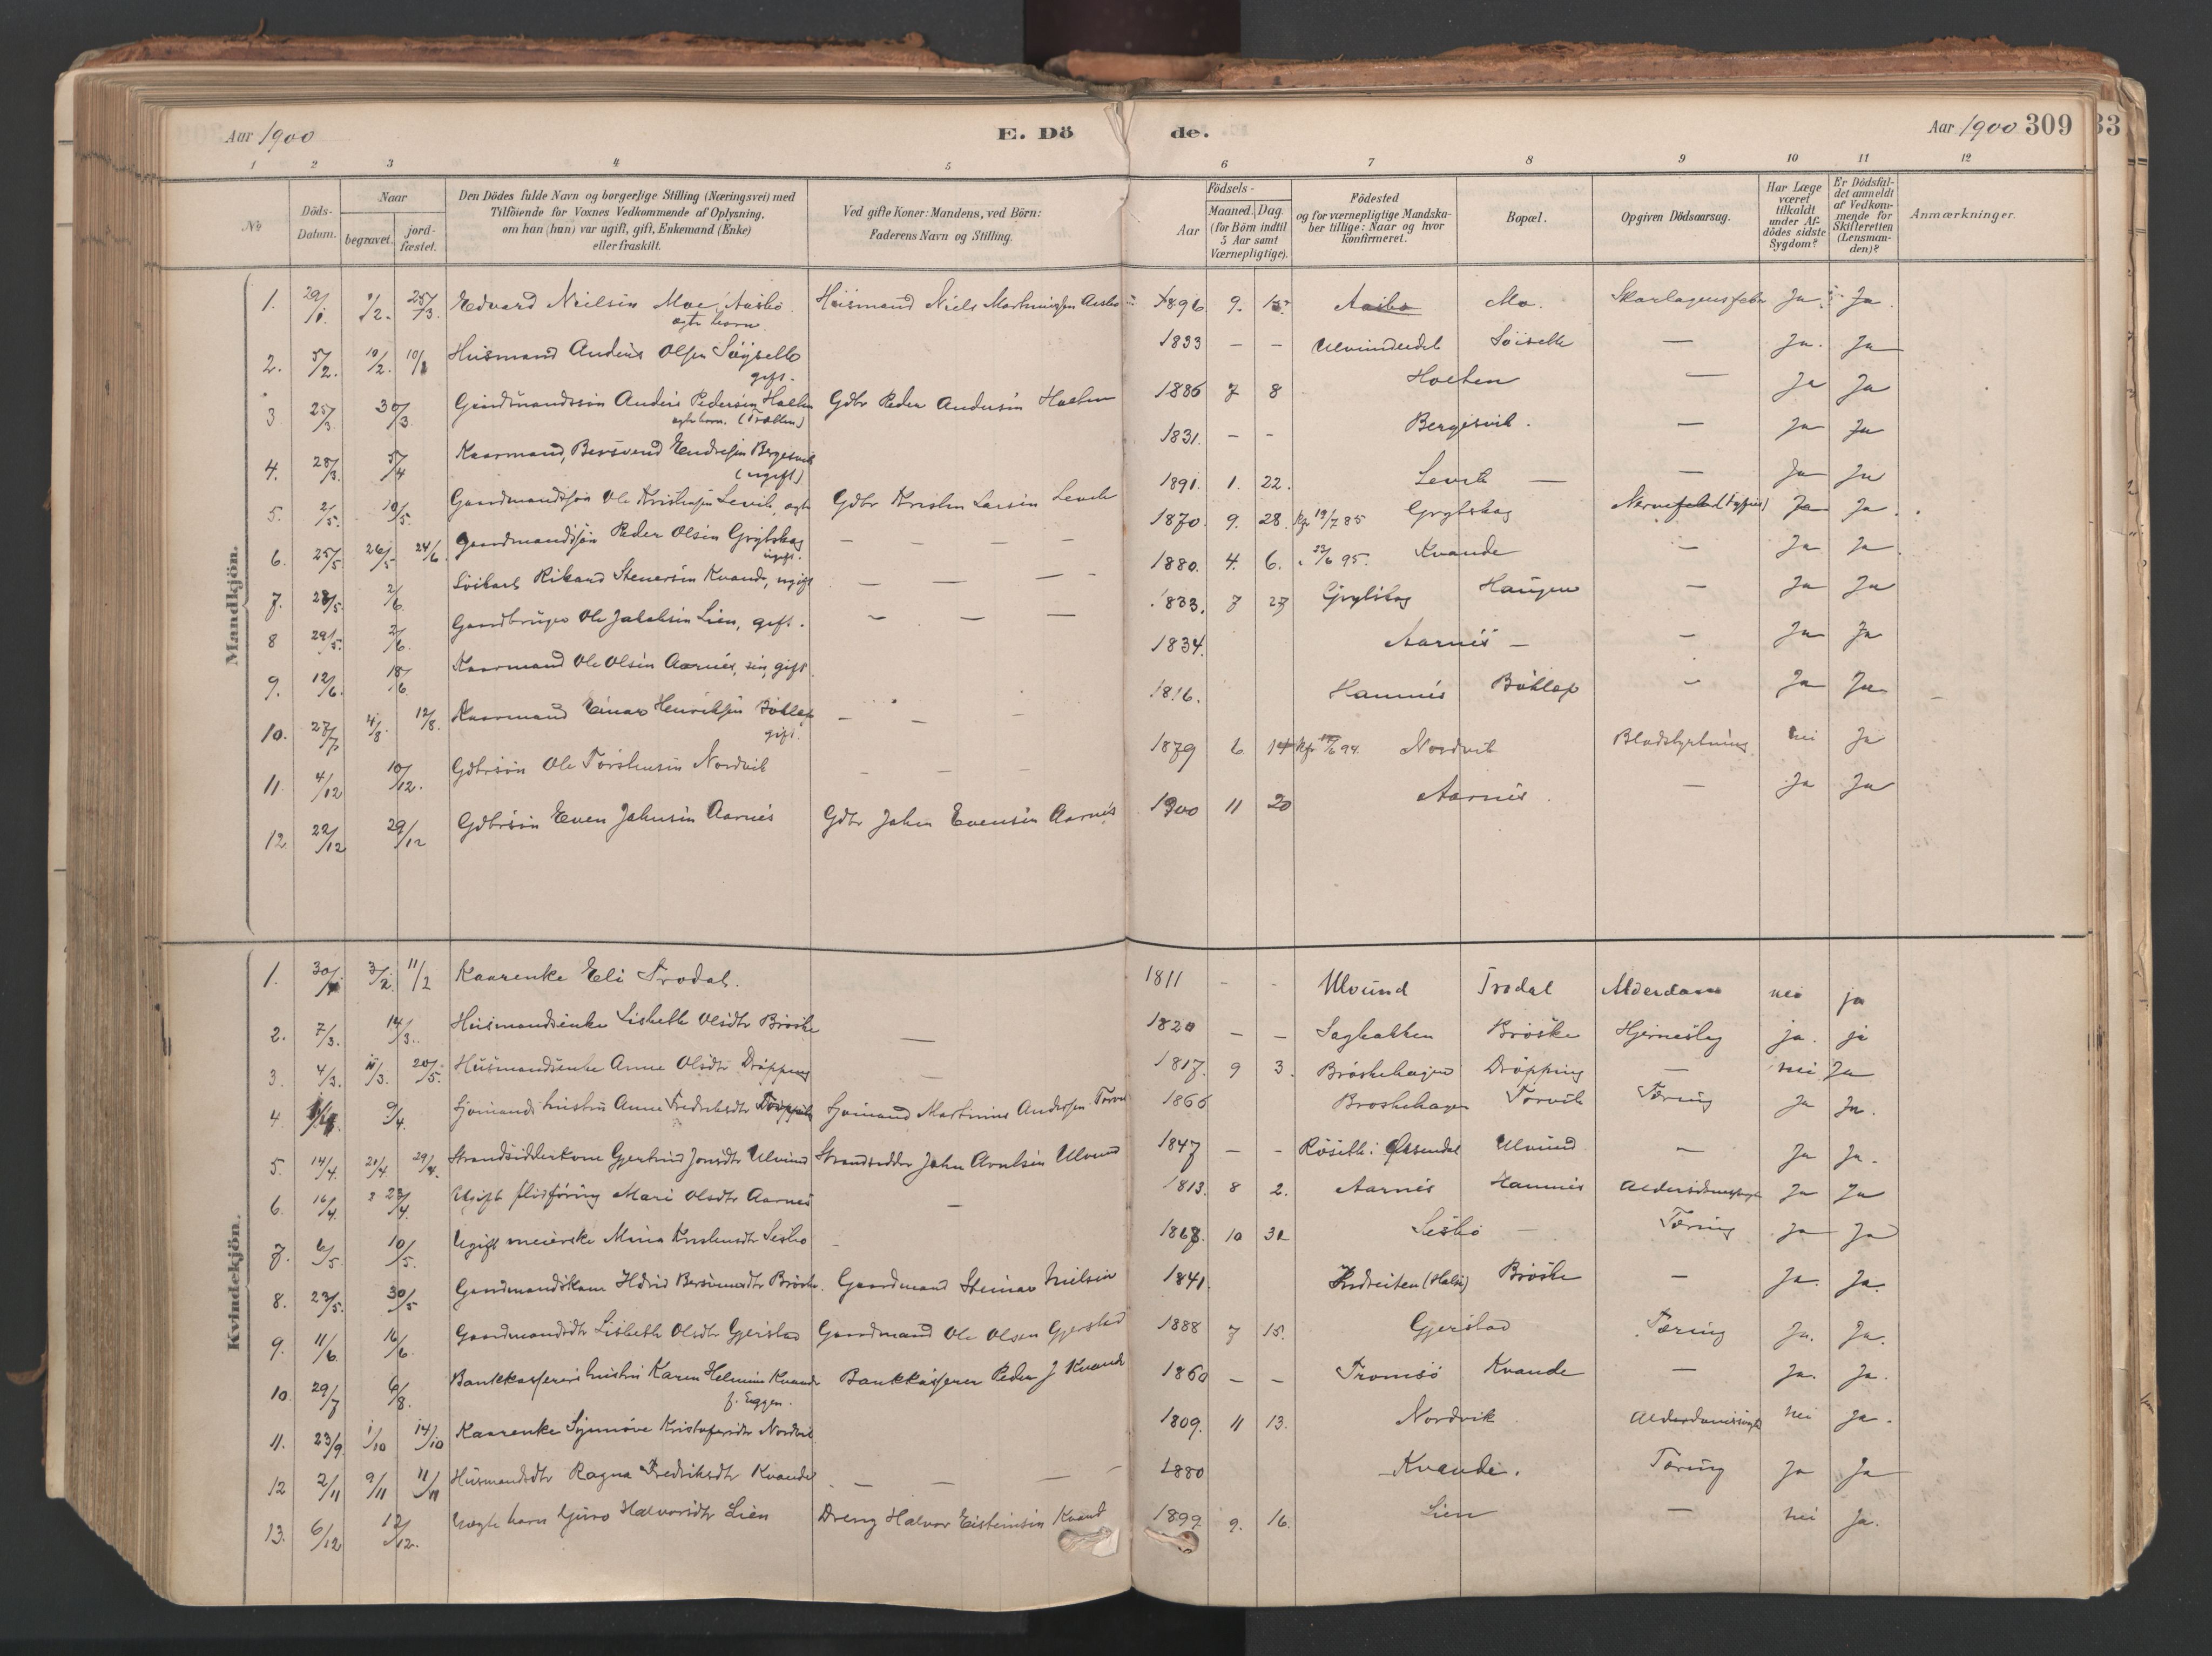 Aar 1900
E. Dö de.
Aar 1900 309
33
1 2 3 4 5 6 7 8 9 10 11 12
No
Döds-Datum.
Naar
begravet.
jord-fæstet.
Den Dödes fulde Navn og borgerlige Stilling (Næringsvei) med
Tilföiende for Voxnes Vedkommende af Oplysning,
om han (hun) var ugift, gift, Enkemand (Enke)
eller fraskilt.
Ved gifte Koner: Mandens, ved Börn:
Faderens Navn og Stilling.
Födsels-
Aar
Maaned. Dag.
(for Börn indtil
5 Aar samt
Værnepligtige).
Födested
og for værnepligtige Mandska-
ber tillige: Naar og hvor
konfirmeret.
Bopæl.
Opgiven Dödsaarsag.
Har Læge
været
tilkaldt
under Af-
dödes sidste
Sygdom?
Er Dödsfal-
det anmeldt
af Vedkom-
mende for
Skifteretten
(Lensman-
den)?
Anmærkninger.
Mandkjön.
1. 29/1. 1/2. 25/3. Edvard Nielsen Moe, Aasbö. Huusmand Niels Martinussen 1896 9. Aasbö Mo. Skarlagensfeber Ja. Ja.
ægte barn.
2. 5/2. 10/2. Husmand Anders Olsen Söyset 1833 – – Ulvundeidet — Ja. Ja
gift.
3 25/3. 30/3 Gaardmandssön Anders Pedersen Holten Gdbr Peder Andersen Holten 1886 7 8 Holten — Ja Ja
ægte barn.
4. 28/3. 5/4 Kaarmand, Endresen Bergesvik 1831. – – Bergesvik. — Ja Ja
(ugift)
5. 2/5. 10/5. Gaardmandssön Ole Kristensen Levik, ægte Gdbr Kristen Larsen Levik 1891. 1. 22. Levik — — Ja Ja
6. 25/5. 26/5 24/6. Gaardmandssön Peder Olsen Grytskog — — — — 1870. 9. 28. kf. 19/7 85 Grytskog Nervefeber (typhus) Ja Ja.
ugift.
7. 28/5. 2/6. Rikard Stenersen Kvande, ugift — — — – 1880. 4. 6. 95. Kvande – Ja Ja.
8 29/5. 2/6. Gaardbruger Ole Jakobsen Lien, gift. – — — 1833. 7 27 Grytskog Haugen – Ja Ja
9. 12/6. 18/6. Kaarmand Ole Olsen Aarnes, sen, gift. 1834. Aarnes — – Ja Ja
10. 27/7. 4/8 12/8. Kaarmand Einar Henriksen Böklep – – – 1816. Hamnes Böklep – Ja Ja –
gift.
11. 4/12 10/12. Gdbrsön Ole Torstensen Nordvik – – – 1879 6 kf. 94. Nordvik Blodstyrtning nei Ja
12. 22/12 29/12 Gdbrsön Even Johnsen Aarnes Gdbr John Evensen Aarnes 1900 11 20 Aarnes. — Ja Ja
Kvindekjön.
1. 30/1 3/2. 11/2 Kaarenke Eli Trodal. 1811 – – Ulvund Trodal Alderdom nei ja
2. 7/3. 14/3. Husmandsenke Lisbeth Olsdtr Bröske — 1820 — – Sagbakken Bröske Hjerneslag ja. ja
3. 4/3. 11/3. 20/5. Husmandsenke Anne Olsdtr Dröpping — 1817. 9 3. Bröskehagen Dröpping — nei Ja
4. 9/4. Sjömands hustru Anne Fredriksdtr Sjömand Martinus Andersen Torvik 1866 Broskehagen Torvik Tæring Ja Ja.
5. 14/4. 21/4. 29/4. Strandsidderkone Gjertrud Jonsdtr Ulvund Strandsidder John Arntsen Ulvund 1847 – – Röseth i Øksendal Ulvund – Ja Ja.
6. 16/4 23/4. Ugift Mari Olsdtr Aarnes – 1813. 8 2. Aarnes Hamnes Ja Ja
7. 6/5 10/5. Ugift meierske Mina Kristensdtr Sesbö – 10 Sesbö – Tæring Ja Ja
8. 23/5. 30/5 Gaardmandskone Bersvendsdtr Bröske. Gaardmand Steinar Nielsen 1841. (Halse) Bröske – Ja. Ja.
9. 11/6. 16/6. Gaardmandsdtr Lisbeth Olsdtr Gjerstad Gaardmand Ole Olsen Gjerstad 1888 7 15. Gjerstad Tæring Ja. Ja.
10. 29/7 6/8. Bankkasserers hustru Karen Helmine Kvande Bankkasserer Peder J Kvande 1860 – – Tromsö Kvande — Ja. Ja.
f. Eggen.
11. 23/9. 1/10 14/10 Kaarenke Synnöve Kristofersdtr Nordvik 1809. 11 13. Nordvik nei Ja.
12 2/11 9/11 11/11 Husmandsdtr Ragna Fredriksdtr Kvande – — — – 1880 Kvande. Tæring Ja Ja
13. 6/12 12/12. Uægte barn Guro Halvorsdtr Lien Dreng Halvor Eisteinsen Kvand 1899 9. 16. Lien — nei Ja.